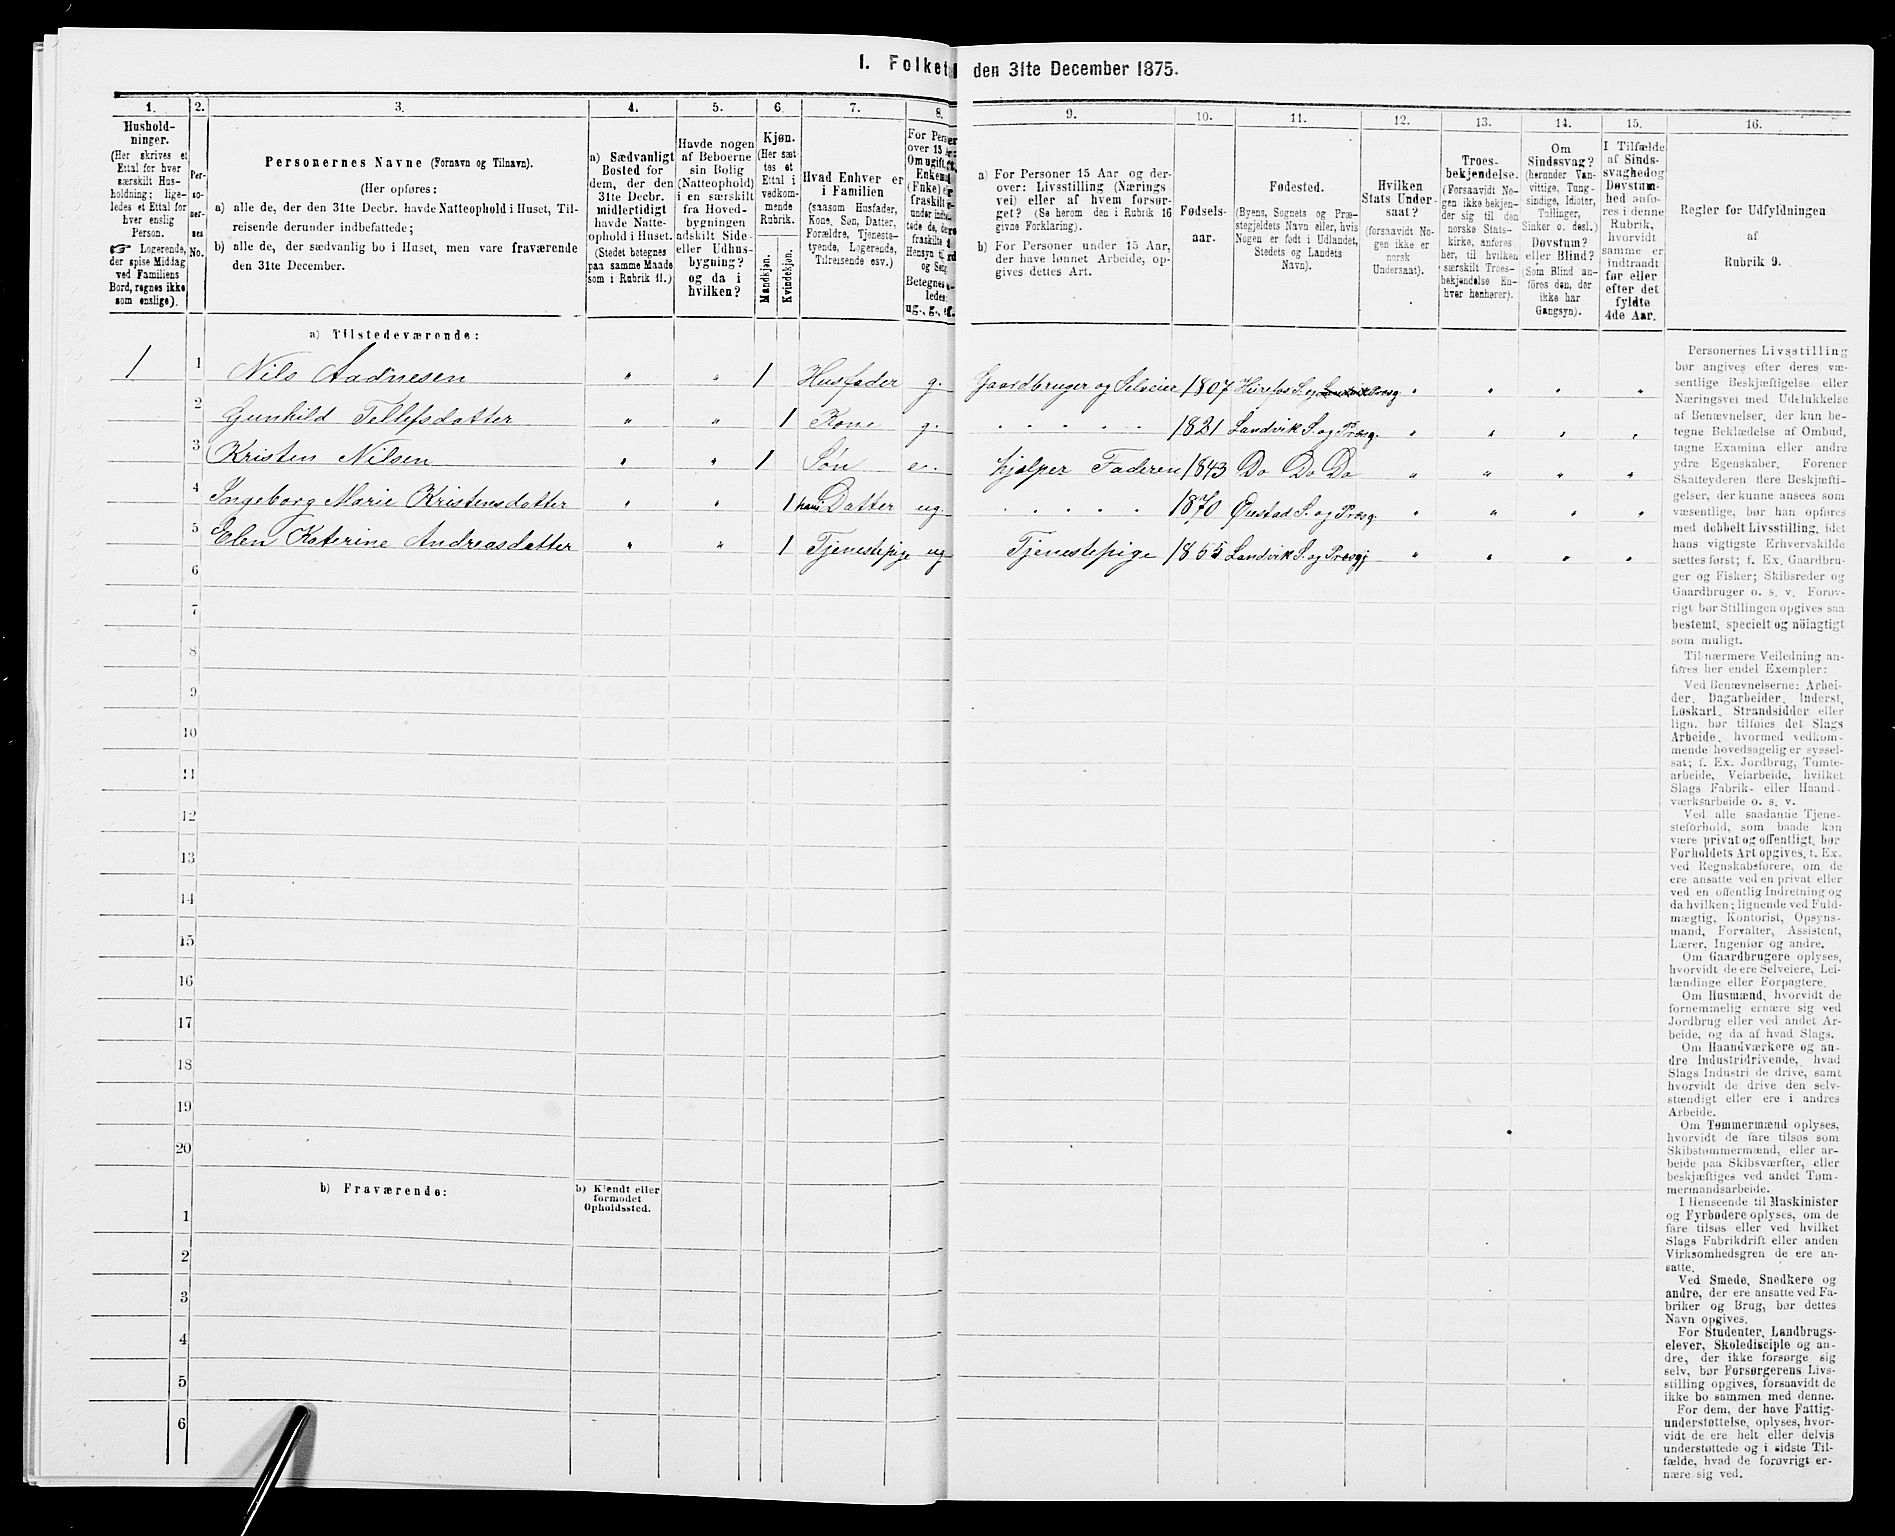 1. Folket
den 31te December 1875.
1.
2.
3.
4.
5.
6.
7.
8.
9.
10.
11.
12.
13.
14.
15.
16.
Hushold-
ninger.
(Her skrives et
Ettal for hver
særskilt Hus-
holdning; lige-
ledes et Ettal for
hver enslig
Person.
☞ Logerende,
der spise Middag
ved Familiens
Bord, regnes ikke
som enslige).
Per-
so-
ner-
nes
No.
Personernes Navne (Fornavn og Tilnavn).
(Her opføres:
a) alle de, der den 31te Decbr. havde Natteophold i Huset, Til-
reisende derunder indbefattede;
b) alle de, der sædvanlig bo i Huset, men vare fraværende
den 31te December.
a) Sædvanligt
Bosted for
dem, der den
31te Decbr.
midlertidigt
havde Natte-
ophold i Huset.
(Stedet betegnes
paa samme Maade
som i Rubrik 11.)
Havde nogen
af Beboerne
sin Bolig
(Natteophold)
i en særskilt
fra Hoved-
bygningen
adskilt Side-
eller Udhus-
bygning?
og da i
hvilken?
Kjøn.
(Her sæt-
tes et
Ettal i
vedkom-
mende
Rubrik.
Mandkjøn.
Kvindekjøn.
Hvad Enhver er
i Familien
(saasom Husfader,
Kone, Søn, Datter,
Forældre, Tjeneste-
tyende, Logerende,
Tilreisende osv.)
For Perso
over 15
Om ugift,
Enkem
(Enke) e
fraskilt
under
tede de, d
fraskilte
Hensyn t
og Seng
Betegnes
ledes:
ug., g., e
a) For Personer 15 Aar og der-
over: Livsstilling (Nærings
vei) eller af hvem forsør-
get? (Se herom den i Rubrik 16
givne Forklaring).
b) For Personer under 15 Aar,
der have lønnet Arbeide, op-
gives dettes Art.
Fødsels-
aar.
Fødested.
(Byens, Sognets og Præ-
stegjeldets Navn eller, hvis
Nogen er født i Udlandet,
Stedets og Landets
Navn).
Hvilken
Stats Under-
saat?
(forsaavidt No-
gen ikke er
norsk
Undersaat).
Troes-
bekjendelse.
(Forsaavidt No-
gen ikke bekjen-
der sig til den
norske Stats-
kirke, anføres
her, til hvilken
særskilt Troes-
bekjendelse En-
hver henhører).
Om
Sindssvag?
(herunder Van-
vittige, Tung-
sindige, Idioter,
Tullinger,
Sinker o. desl.)
Døvstum?
eller Blind?
(Som Blind an-
føres den, der
ikke har
Gangsyn).
I Tilfælde
af Sinds-
svaghed og
Døvstum-
hed anfø-
res i denne
Rubrik,
hvorvidt
samme er
indtraadt
før eller
efter det
fyldte
4de Aar.
Regler for Udfyldningen
af
Rubrik 9.
a) Tilstedeværende:
1 1 Nils Aadnesen " " 1 Husfader g. Gaardbruger og Selveier 1807 Herefos S. og Præsg " " " "
2 Gunhild Tellefsdatter " " 1 Kone g. . . . . . 1821 Landvik S. og Præsg. " " " "
3 Kristen Nilsen " " 1 Søn e. hjælper Faderen 1843 Do Do Do " " " "
4 Ingeborg Marie Kristensdatter " " 1 hans Datter ug. . . . . . 1870 Øiestad S. og Præsg. " " " "
5 Elen Katerine Andreasdatter " " 1 Tjenestepige ug Tjenestepige 1855 Landvik S. og Præsgj " " " "
6
7
8
9
10
11
12
13
14
15
16
17
18
19
20
b) Fraværende:
b) Kjendt eller
formodet
Opholdssted.
1
2
3
4
5
6
Personernes Livsstilling
bør angives efter deres væ-
sentlige Beskjæftigelse eller
Næringsvei med Udelukkelse
af Benævnelser, der kun be-
tegne Beklædelse af Ombud,
tagne Examina eller andre
ydre Egenskaber. Forener
Skatteyderen flere Beskjæfti-
gelser, der kunne ansees som
væsentlige, bør han opføres
med dobbelt Livsstilling, idet
hans vigtigste Erhvervskilde
sættes først; f. Ex. Gaardbru-
ger og Fisker; Skibsreder og
Gaardbruger o. s. v. Forøv-
rigt bør Stillingen opgives saa
bestemt, specielt og nøiagtigt
som muligt.
Til nærmere Veiledning an-
føres her endel Exempler:
Ved Benævnelserne: Arbei-
der, Dagarbeider, Inderst,
Løskarl, Strandsidder eller
lign. bør tilføies det Slags
Arbeide, hvormed vedkom-
mende hovedsagelig er syssel-
sat; f. Ex. Jordbrug, Tomte-
arbeide, Veiarbeide, hvilket
Slags Fabrik- eller Haand-
værksarbeide o. s. v.
Ved alle saadanne Tjene-
steforhold, som baade kan
være privat og offentligt, bør
Forholdets Art opgives, t. Ex.
ved Regnskabsførere, om de
ere ansatte ved en privat eller
ved en offentlig Indretning og
da hvilken; lignende ved Fuld-
mægtig, Kontorist, Opsyns-
mand, Forvalter, Assistent,
Lærer, Ingeniør og andre.
Om Gaardbrugere oplyses,
hvorvidt de ere Selveiere, Lei-
lændinge eller Forpagtere.
Om Husmænd, hvorvidt de
fornemmelig ernære sig ved
Jordbrug eller ved andet Ar-
beide, og da af hvad Slags.
Om Haandværkere og an-
dre Industridrivende, hvad
Slags Industri de drive, samt
hvorvidt de drive den selv-
stændigt eller ere i andres
Arbeide.
Om Tømmermænd oplyses,
hvorvidt de fare tilsøs som
Skibstømmermænd, eller ar-
beide paa Skibsværfter, eller
beskjæftiges ved andet Tøm-
mermandsarbeide.
I Henseende til Maskinister
og Fyrbødere oplyses, om de
fare tilsøs eller ved hvilket
Slags Fabrikdrift eller anden
Virksomhedsgren de ere an-
satte.
Ved Smede, Snedkere og
andre, der ere ansatte ved Fa-
briker og Brug, bør dettes
Navn opgives.
For Studenter, Landbrugs-
elever, Skoledisciple og an-
dre, der ikke forsørge sig
selv, bør Forsørgerens Livs-
stilling opgives, forsaavidt de
ikke bo sammen med denne.
For dem, der have Fattig-
understøttelse, oplyses, hvor-
vidt de ere helt eller delvis
understøttede og i sidste Til-
fælde, hvad de forøvrigt er-
nære sig ved.